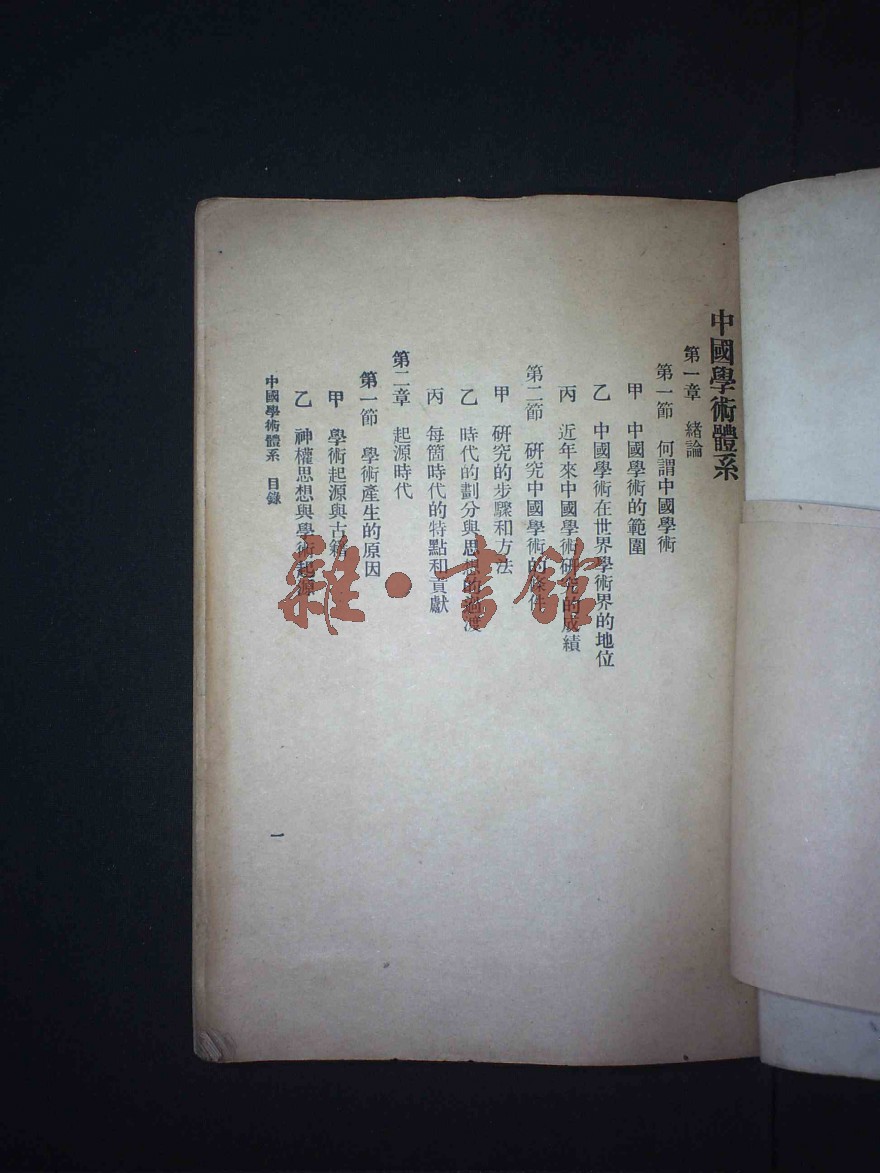 中國學術體系
第一章　緒論
第一節　何謂中國學術
甲　中國學術的範圍
乙　中國學術在世界學術界的地位
丙　近年來中國學術研究的成績
第二節　研究中國學術的條件
甲　研究的步驟和方法
乙　時代的劃分與思想的過渡
丙　每箇時代的特點和貢獻
第二章　起源時代
第一節　學術產生的原因
甲　學術起源與古籍
乙　神權思想與學術起源
中國學術體系　目錄
一
雜·書館